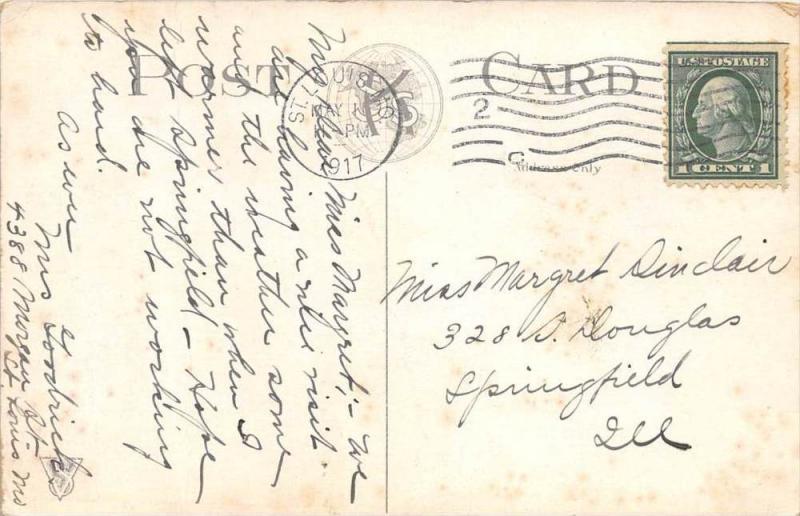 POST CARD
ST. LOUIS MO
MAY
PM
1917
2
C
U.S. POSTAGE
1 CENT 1
Address Only
My Dear Miss Margret; - We
are having a nice visit
and the weather some
warmer than when I
left Springfield - Hope
you are not working
to hard.
as ever
Mrs Goodrich
4388 Morgan St
St Louis Mo
Miss Margret Sinclair
328 S. Douglas
Springfield
Ill